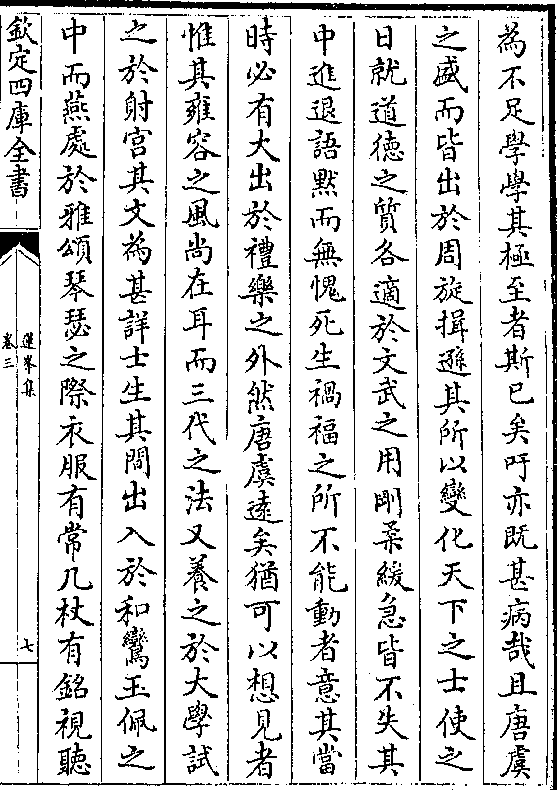 為不足學學其極至者斯已矣吁亦既甚病哉且唐虞
之盛而皆出於周旋揖遜其所以變化天下之士使之
日就道徳之質各適於文武之用剛柔緩急皆不失其
中進退語黙而無愧死生禍福之所不能動者意其當
時必有大出於禮樂之外然唐虞逺矣猶可以想見者
惟其雍容之風尚在耳而三代之法又養之於大學試
之於射宫其文為甚詳士生其間出入於和鸞玉佩之
中而燕處於雅頌琴瑟之際衣服有常几杖有銘視聽
欽定四庫全書
蓮峯集
卷三
七